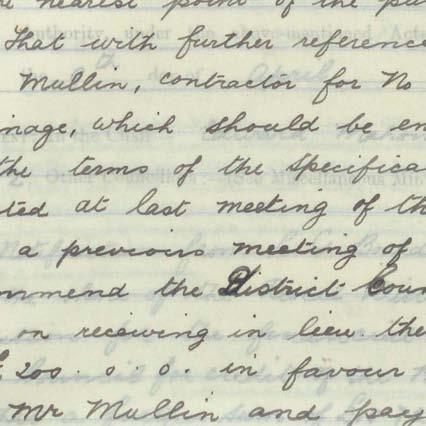 nearest point of the pu
That with further reference
Mullin, contractor for No
inage, which should be en
the terms of the specifica
ted at last meeting of th
a previous meeting of
ommend the District Coun
on receiving in lieu the
£200. 0. 0. in favour
Mr Mullin and pay